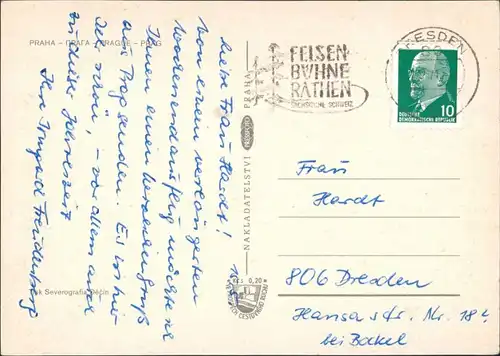 PRAHA – ПРАГА – PRAGUE – PRAG
Liebe Frau Hardt!
Von einem verlängerten
Wochenendausflug möchte
Ihnen einen herzlichen Gruß
aus Prag senden. Es ist hier
sehr schön, – vor allem auch
zu dieser Jahreszeit
Ihre Irmgard
Tisk Severografia Děčín
NAKLADATELSTVÍ
PRAHA
Kčs 0,20
DRESDEN
FELSEN
BÜHNE
RATHEN
SÄCHSISCHE SCHWEIZ
10
DEUTSCHE
DEMOKRATISCHE REPUBLIK
Frau
Hardt
806 Dresden
Hansastr. Nr. 18
bei